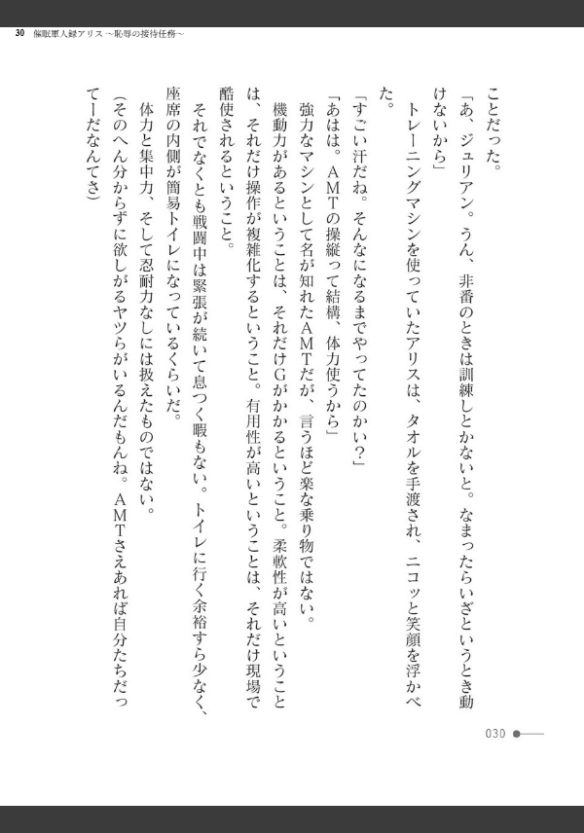 30 催眠軍人録アリス ～恥辱の接待任務～
ことだった。
「あ、ジュリアン。うん、非番のときは訓練しとかないと。なまったらいざというとき動
けないから」
　トレーニングマシンを使っていたアリスは、タオルを手渡され、ニコッと笑顔を浮かべ
た。
「すごい汗だね。そんなになるまでやってたのかい？」
「あはは。ＡＭＴの操縦って結構、体力使うから」
　強力なマシンとして名が知れたＡＭＴだが、言うほど楽な乗り物ではない。
　機動力があるということは、それだけＧがかかるということ。柔軟性が高いということ
は、それだけ操作が複雑化するということ。有用性が高いということは、それだけ現場で
酷使されるということ。
　それでなくとも戦闘中は緊張が続いて息つく暇もない。トイレに行く余裕すら少なく、
座席の内側が簡易トイレになっているくらいだ。
　体力と集中力、そして忍耐力なしには扱えたものではない。
（そのへん分からずに欲しがるヤツらがいるんだもんね。ＡＭＴさえあれば自分たちだっ
てーだなんてさ）
030